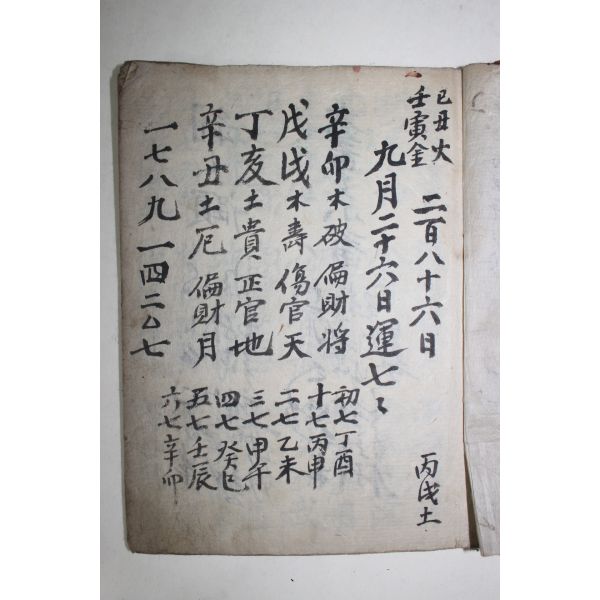 己丑火
壬寅金
二百八十六日
丙戌土
九月二十六日運七〻
辛卯木破偏財將
戊戌木壽傷官天
丁亥土貴正官地
辛丑土厄偏財月
一七八九一四二〇七
初七丁酉
十七丙申
二七乙未
三七甲午
四七癸巳
五七壬辰
六七辛卯